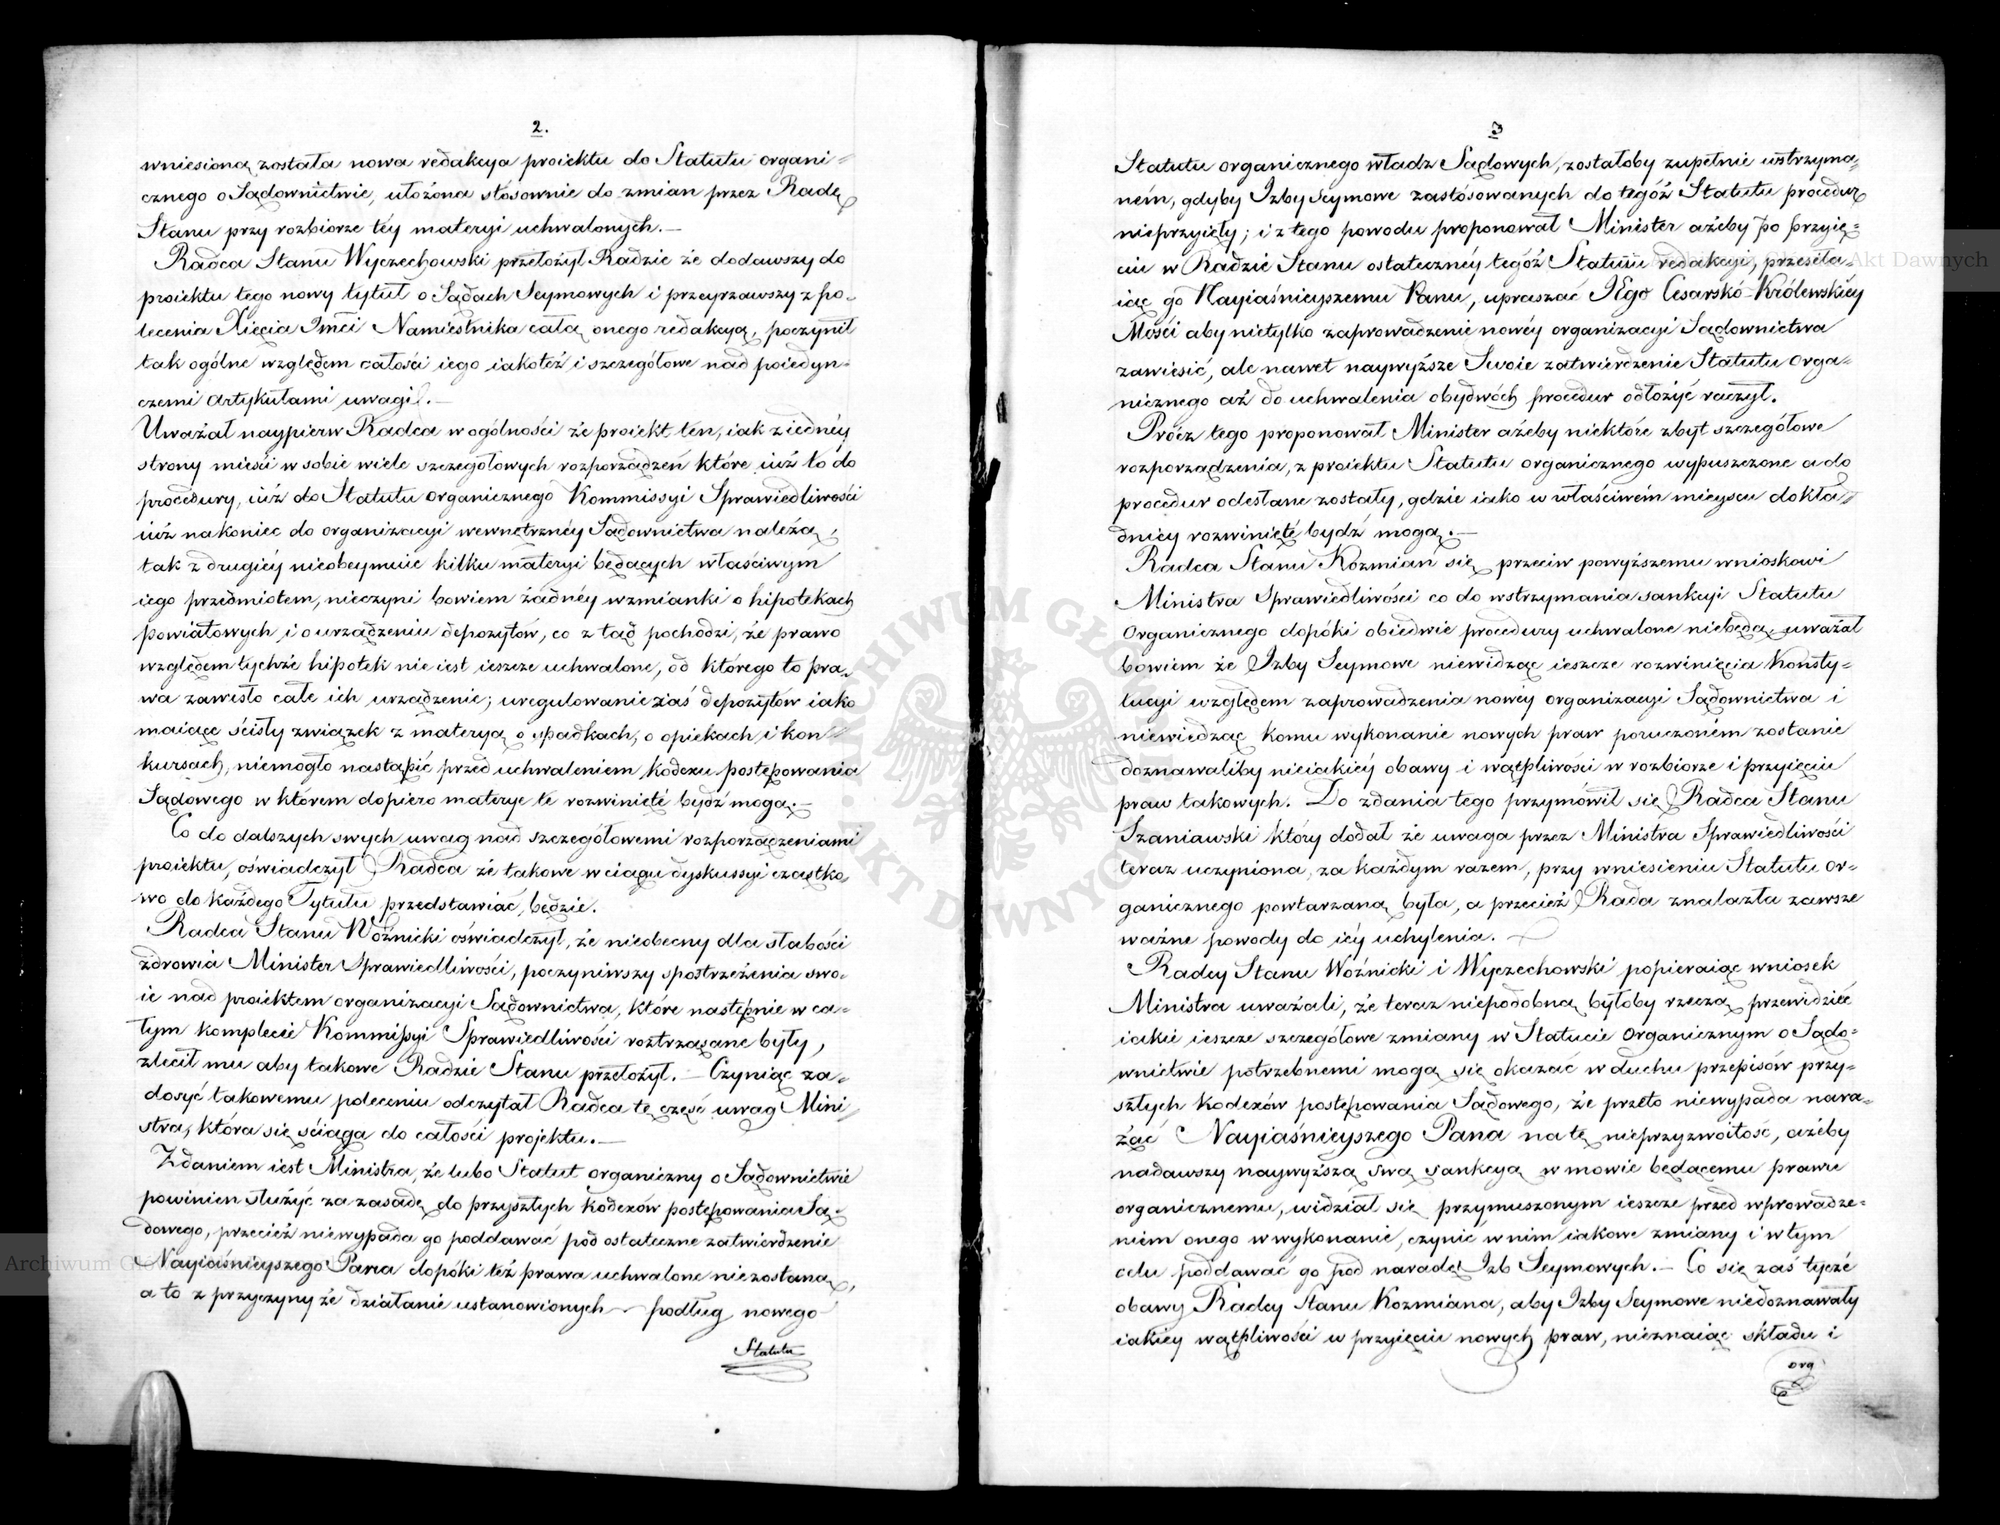 2.
wniesioną została nowa redakcya proiektu do Statutu organi=
cznego o Sądownictwie, ułożona stósownie do zmian przez Radę
Stanu przy rozbiorze téy materyi uchwalonych.—
Radca Stanu Wyczechowski przełożył Radzie że dodawszy do
proiektu tego nowy tytuł o Sądach Seymowych i przeyrzawszy z po-
lecenia Xięcia Jmci Namiestnika całą onego redakcyą, poczynił
tak ogólne względem całości iego iakoteż i szczegółowe nad poiedyn-
czemi artykułami uwagi.—
Uważał naypierw Radca w ogólności że proiekt ten, iak z iednéy
strony mieści w sobie wiele szczegółowych rozporządzeń które iuż to do
procedury, iuż do Statutu organicznego Kommissyi Sprawiedliwości
iuż nakoniec do organizacyi wewnętrznéy Sądownictwa należą,
tak z drugiéy nieobeymuie kilku materyi będących właściwym
iego przedmiotem, nieczyni bowiem żadnéy wzmianki o hipotekach
powiatowych, i o urządzeniu depozytów, co z tąd pochodzi, że prawo
względem tychże hipotek nie iest ieszcze uchwalone, od którego to pra-
wa zawisło całe ich urządzenie; uregulowanie zaś depozytów iako
maiące ścisły związek z materyą o spadkach, o opiekach, i kon-
kursach, niemogło nastąpić przed uchwaleniem kodexu postępowania
Sądowego w którem dopiero materye te rozwinięte bydź mogą.—
Co do dalszych swych uwag nad szczegółowemi rozporządzeniami
proiektu, oświadczył Radca że takowe w ciągu dyskussyi cząstko-
wo do każdego Tytułu przedstawiać będzie.
Radca Stanu Woźnicki oświadczył, że nieobecny dla słabości
zdrowia Minister Sprawiedliwości, poczyniwszy spostrzeżenia swo-
ie nad proiektem organizacyi Sądownictwa, które następnie w ca-
łym komplecie Kommissyi Sprawiedliwości roztrząsane były,
zlecił mu aby takowe Radzie Stanu przełożył.— Czyniąc za-
dosyć takowemu poleceniu odczytał Radca tę część uwag Mini
stra, która się ściąga do całości projektu.—
Zdaniem iest Ministra, że lubo Statut organiczny o Sądownictwie
powinien służyć za zasadę do przyszłych kodexów postępowania Są-
dowego, przecież niewypada go poddawać pod ostateczne zatwierdzenie
Nayiaśnieyszego Pana dopóki też prawa uchwalone nie zostaną,
a to z przyczyny że działanie ustanowionych podług nowego
Statutu
3
Statutu organicznego władz Sądowych, zostałoby zupełnie wstrzyma-
ném, gdyby Izby Seymowe zastósowanych do tegóż Statutu procedur
nieprzyięły; i z tego powodu proponował Minister ażeby po przyię-
ciu w Radzie Stanu ostatecznéy tegóż Statutu redakcyi, przeseła-
iąc go Nayiaśnieyszemu Panu, upraszać JEgo Cesarskó-Królewskiéy
Mości aby nietylko zaprowadzenie nowéy organizacyi Sądownictwa
zawiesić, ale nawet naywyższe Swoie zatwierdzenie Statutu orga-
nicznego aż do uchwalenia obydwóch procedur odłożyć raczył.
Prócz tego proponował Minister ażeby niektóre zbyt szczegółowe
rozporządzenia, z proiektu Statutu organicznego wypuszczone a do
procedur odesłane zostały, gdzie iako w właściwém mieyscu dokła-
dniéy rozwinięte bydź mogą.—
Radca Stanu Kozmian się przeciw powyższemu wnioskowi
Ministra Sprawiedliwości co do wstrzymania sankcyi Statutu
Organicznego dopóki obiedwie procedury uchwalone niebędą, uważał
bowiem że Izby Seymowe niewidząc ieszcze rozwinięcia Konsty-
tucyi względem zaprowadzenia nowéy organizacyi Sądownictwa i
niewiedząc komu wykonanie nowych praw poruczoném zostanie
doznawaliby nieiakiéy obawy i wątpliwości w rozbiorze i przyięciu
praw takowych. Do zdania tego przymówił się Radca Stanu
Szaniawski który dodał że uwaga przez Ministra Sprawiedliwości
teraz uczyniona, za każdym razem, przy wniesieniu Statutu or-
ganicznego powtarzaną była, a przecież Rada znalazła zawsze
ważne powody do iéy uchylenia.
Radcy Stanu Woźnicki i Wyczechowski popieraiąc wniosek
Ministra uważali, że teraz niepodobną byłoby rzeczą przewidzieć
iakie ieszcze szczegółowe zmiany w Statucie Organicznym o Sądo-
wnictwie potrzebnemi mogą się okazać w duchu przepisów przy-
szłych kodexów postępowania Sądowego, że przeto niewypada nara-
żać Nayiaśnieyszego Pana na tę nieprzyzwoitość, ażeby
nadawszy naywyższą swą sankcyą w mowie będącemu prawu
organicznemu, widział się przymuszonym ieszcze przed wprowadze-
niem onego w wykonanie, czynić w nim iakowe zmiany i w tym
celu poddawać go pod naradę Izb Seymowych.— Co się zaś tycze
obawy Radcy Stanu Kozmiana, aby Izby Seymowe niedoznawały
iakiey wątpliwości w przyięciu nowych praw, nieznaiąc składu i
org